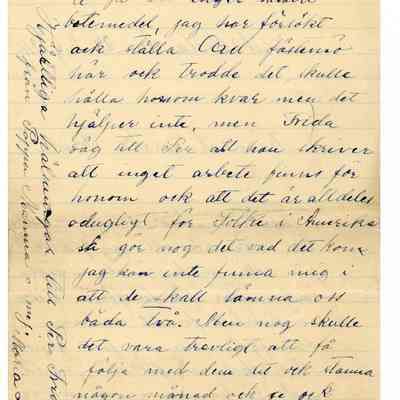 botemedel, jag har försökt
ock ställa Carl fästemö
här ock trodde det skulle
hålla honom kvar men det
hjälper inte, men Frida
säg till Per att han skriver
att inget arbete finns för
honom ock att det är alldeles
odugligt för folke i Amerika
så gör nog det vad det kan
jag kan inte finna meg i
att de skall lämna oss
båda två. Men nog skulle
det vara trevligt att få
följa med dem dit ock stanna
någon månad ock se ock
hjärtliga hälsningar till Per Frida
från Pappa Mamma o mej